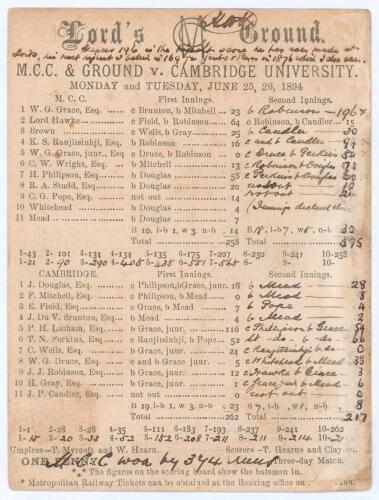 Lord's Ground.
Grace's 196 is the score he has ever made at
Lord's, his next is 169 in 1876 which I also saw.
M.C.C. & GROUND v. CAMBRIDGE UNIVERSITY.
MONDAY and TUESDAY, JUNE 25, 26, 1894
M. C. C. First Innings. Second Innings.
1 W. G. Grace, Esq. c Brunton, b Mitchell 23 b Robinson 196
2 Lord Hawke c Field, b Robinson 64 c Robinson, b Candler
3 Brown c Wells, b Gray 25 b Candler 30
4 K. S. Ranjitsinhji, Esq. b Robinson 16 c and b Candler
5 W. G. Grace, junr., Esq c Druce, b Robinson 0 c Druce b Perkins 54
6 C. W. Wright, Esq. b Mitchell 13 c Robinson b
7 H. Philipson, Esq. b Douglas 58 c Perkins b 60
8 R. A. Studd, Esq. b Douglas 20 not out
9 C. G. Pope, Esq. not out 14 not out
10 Whitehead b Douglas 4 (Innings declared
11 Mead b Douglas 7
B 10, l-b 1, w 3, n-b 14 B 18, l-b 7, w 5, n-b 30
Total 258 595
1-43 2-101 3-134 4-134 5-135 6-175 7-207 8-230 9-241 10-258
1-21 2-90 3-290 4-405 5- 6-551 7-565 8- 9- 10-
CAMBRIDGE. First Innings. Second Innings.
1 J. Douglas, Esq. c Philipson, b Grace, junr. 18 b Mead 28
2 F. Mitchell, Esq. c Philipson, b Mead 0 b Mead 8
3 E. Field, Esq. c Grace, b Mead 7 b Pope 4
4 J. Du V. Brunton, Esq. b Mead 4 b Mead 2
5 P. H. Latham, Esq. b Grace, junr. 116 c Philipson b Grace 54
6 T. N. Perkins, Esq. c Ranjitsinhji, b Pope 52 st do. b do 66
7 C. Wells, Esq. b Grace, junr. 24 c Ranjitsinhji b do 0
8 W. G. Druce, Esq. c and b Grace, junr. 5 c Whitehead b Mead 38
9 J. J. Robinson, Esq. b Grace, junr. 12 c Hawke b Grace 3
10 H. Gray, Esq. b Grace, junr. 1 c Grace junr b Mead 6
11 J. P. Candler, Esq. not out 0 not out 0
B 19, l-b 1, w 3, n-b 23 B 7, l-b , w 1, n-b 8
Total 262 217
1-1 2-28 3-28 4-35 5-111 6-183 7-193 8-237 9-241 10-262
1-15 2-20 3-33 4-52 5-152 6-208 7-211 8-211 9-214 10-21
Umpires—T. Mycroft and W. Hearn. Scorers—T. Hearne and Clayton.
ONE PENNY. M.C.C. won by 374 runs Three-day Match.
* The figures on the scoring board show the batsmen in.
* Metropolitan Railway Tickets can be obtained at the Booking Office on